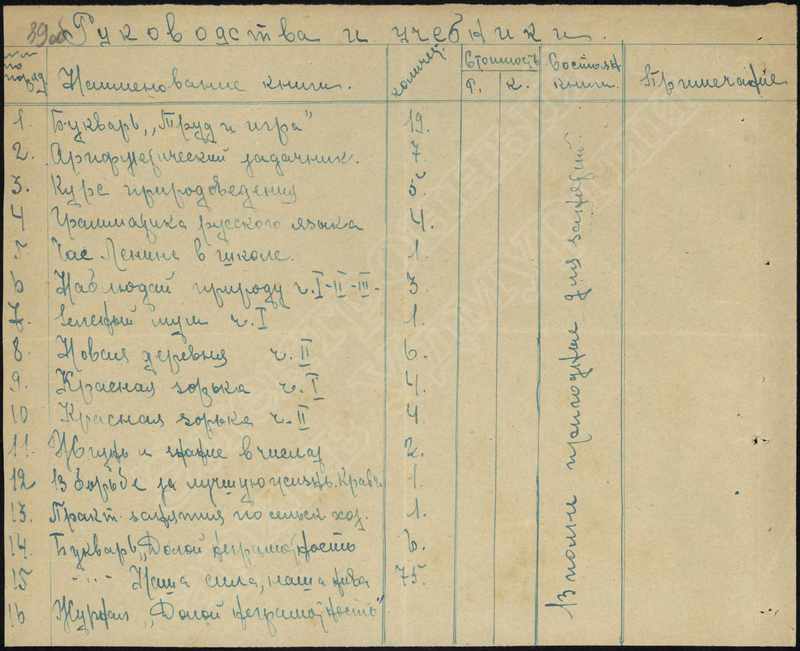 39об Руководства и учебники.
№№ по поряд. Наименование книги. количес. Стоимость Р. К. Состоян. книги. Примечание
1. Букварь „Труд и игра" 19.
2. Арифметический задачник. 7
3. Курс природоведения 5
4 Грамматика русского языка 4.
5 Час Ленина в школе. 1
6 Наблюдай природу ч. I-II-III- 3
7. Зеленый шум ч. I 1.
8. Новая деревня ч. II 6.
9. Красная зорька ч. I 4.
10 Красная зорька ч. II 4
11 Жизнь и знание в числах 2.
12 В борьбе за лучшую жизнь. Кравч. 1.
13. Практ. занятия по сельск. хоз. 1.
14. Букварь „Долой неграмотность 6.
15 -"- Наша сила, наша нива 75.
16 Журнал „Долой неграмотность"
Вполне пригодные для занятий.